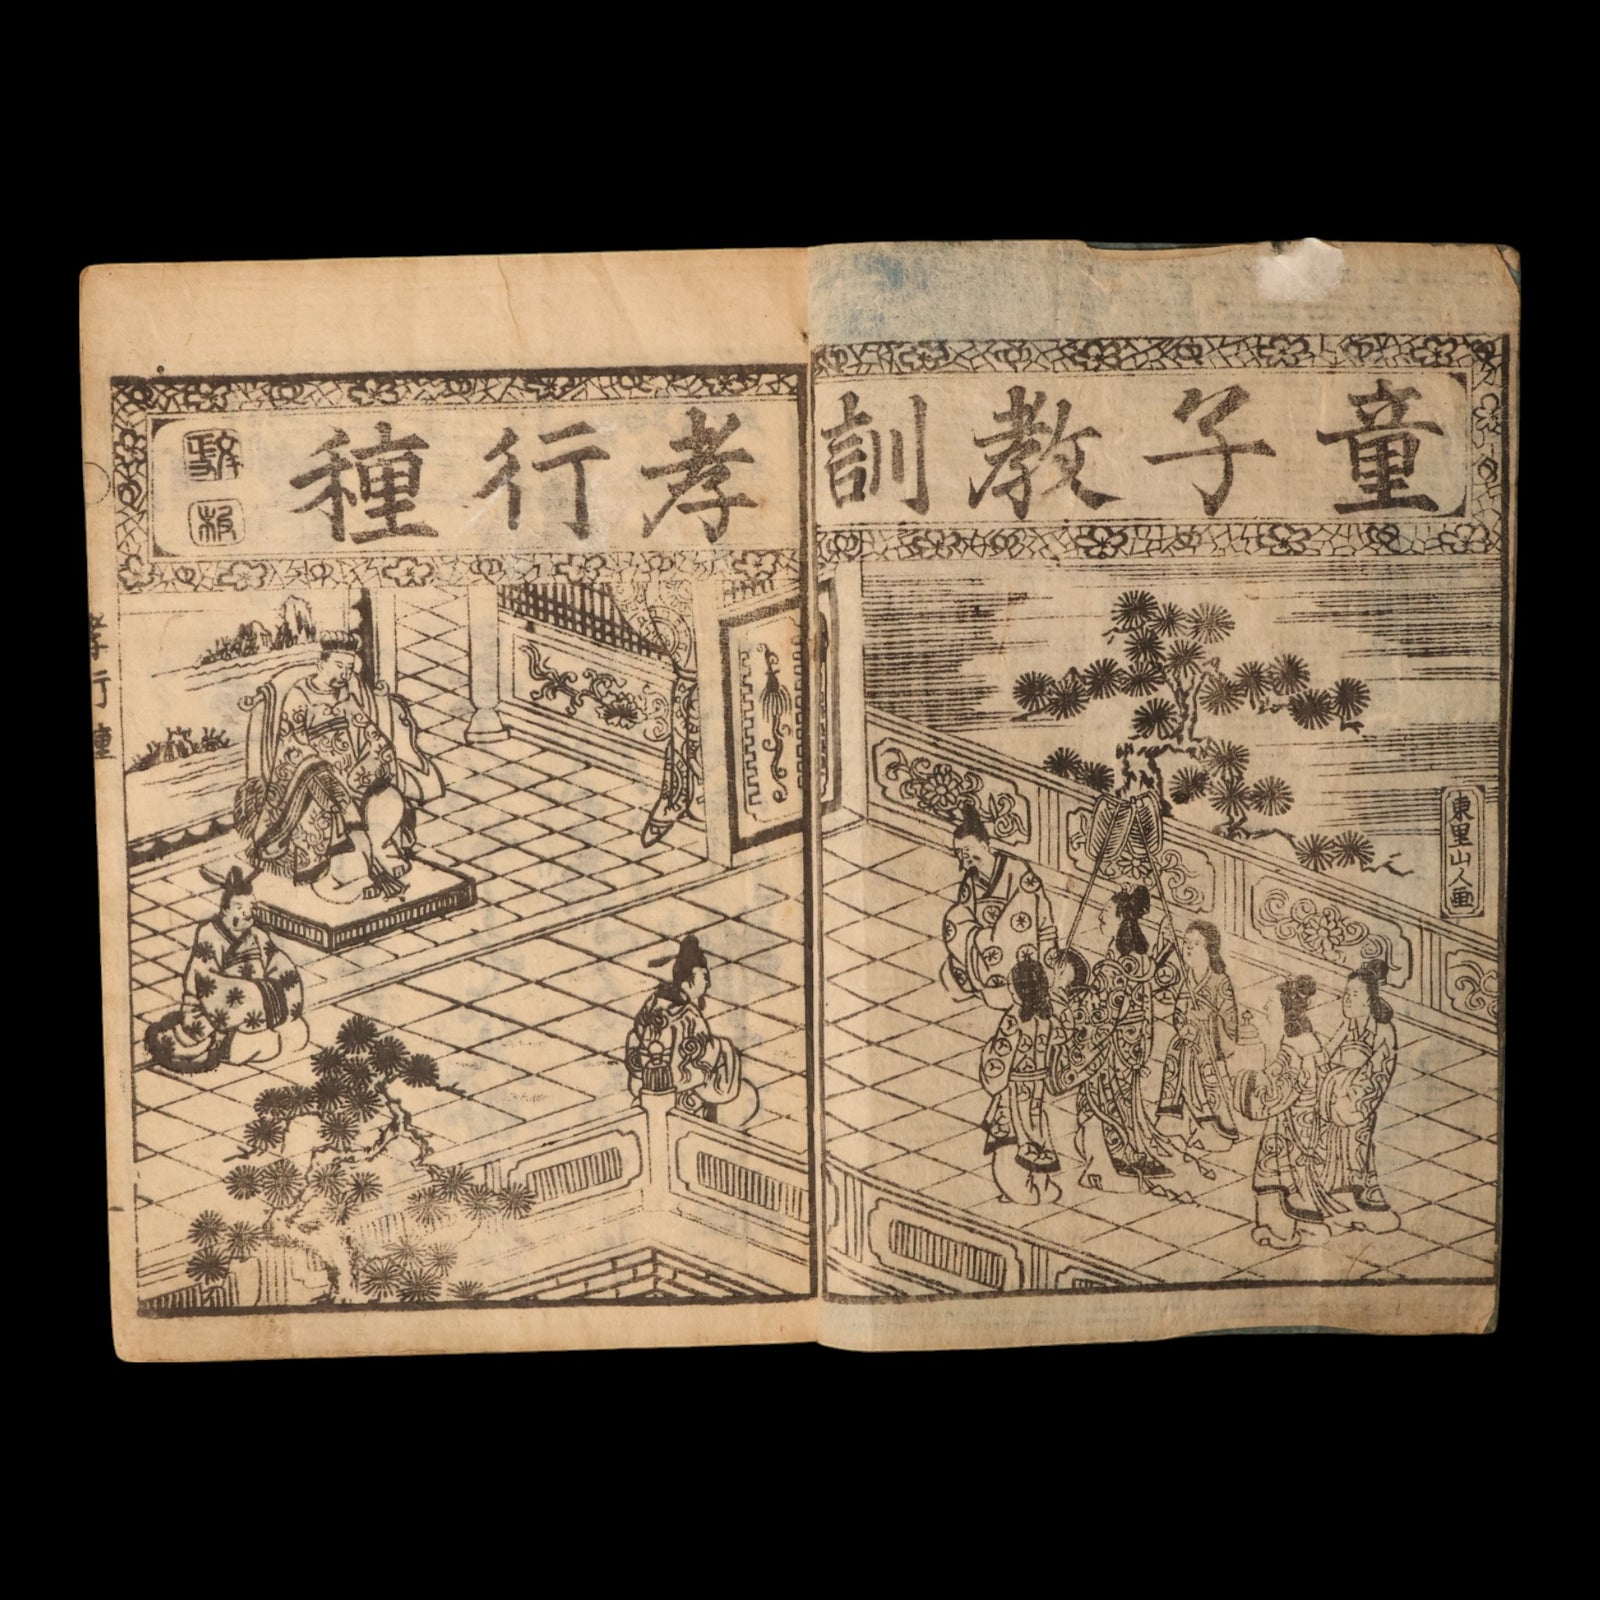 童子教訓
孝行種
改正
板
東里山人画
孝行種